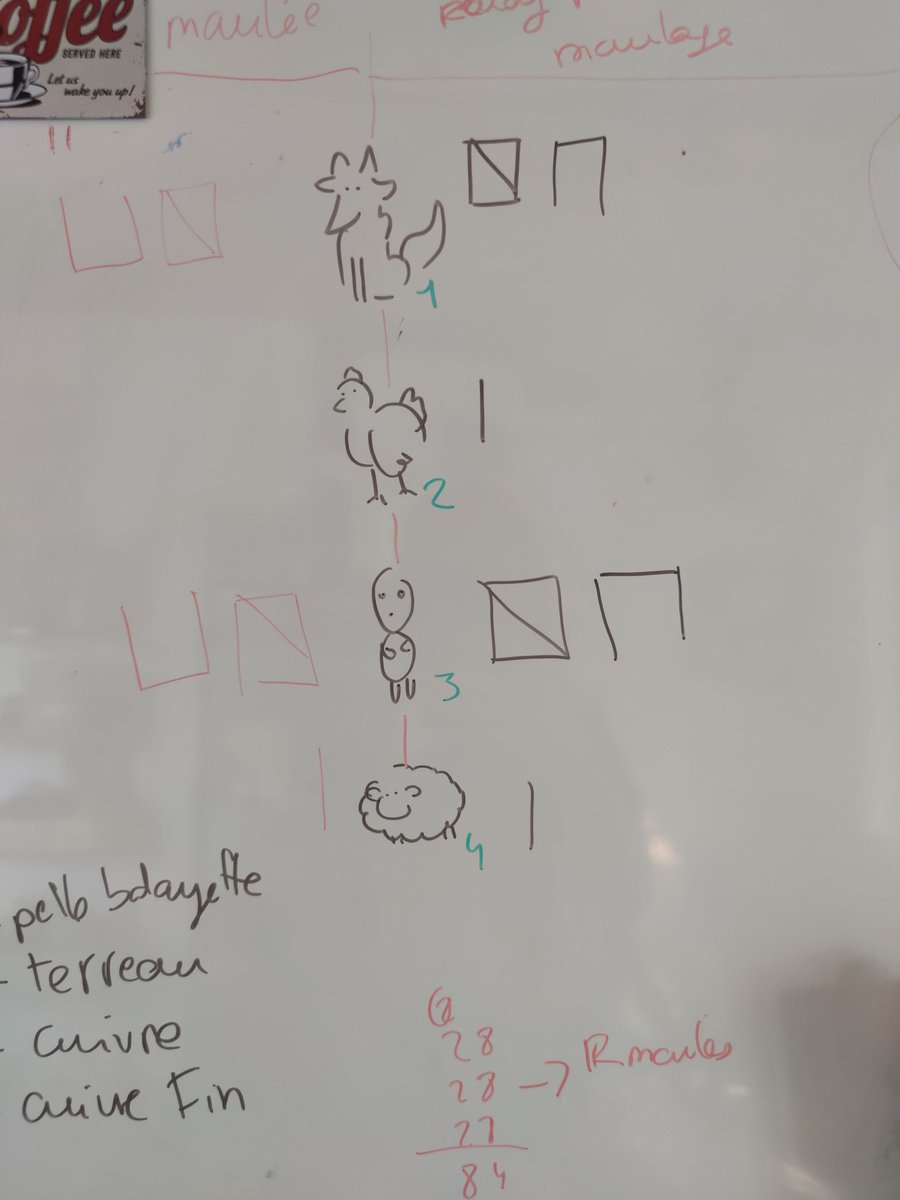 offee
SERVED HERE
Let us
wake you up!
maulée
maulage
1
2
3
4
- terreau
- cuivre
- cuivre Fin
2
28
28 → R maules
27
84